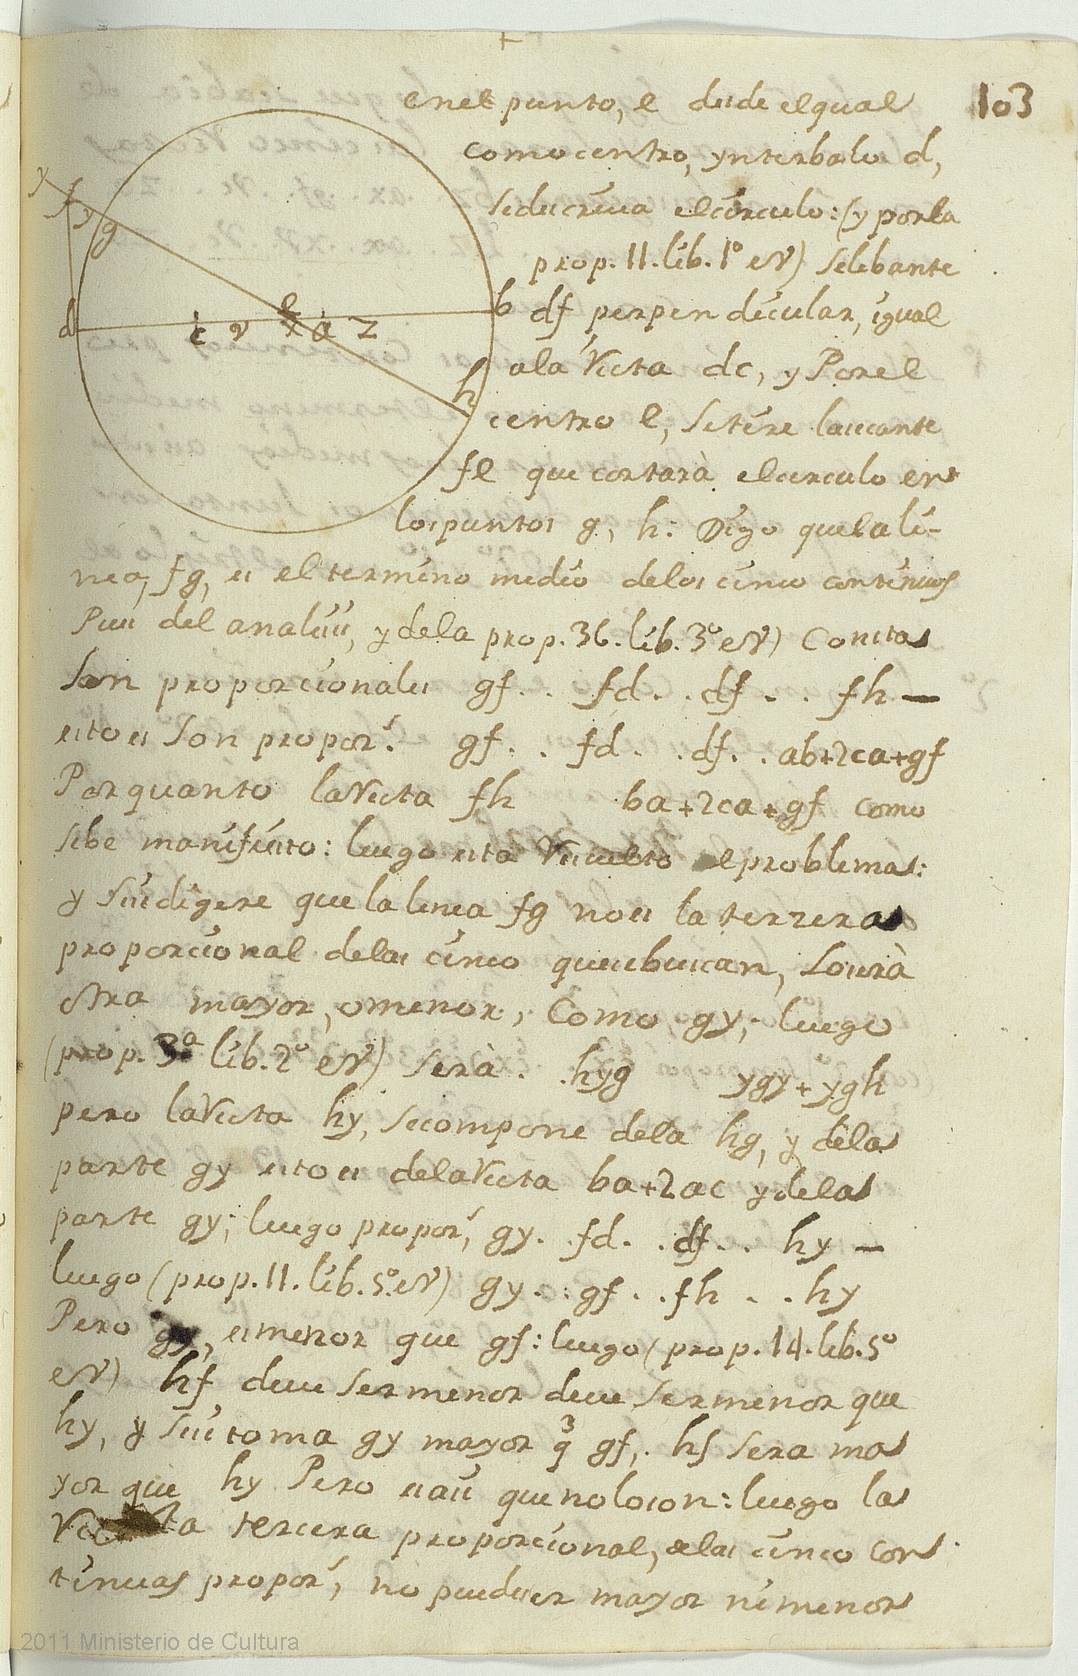 103
en el punto, e desde el qual
como centro, ynterbalo d,
se descriva el circulo: (y por la
prop. 11. lib. 1º eV) se lebante
df perpendicular, igual
ala Recta dc, y Por el
centro e, se tire la secante
fe que cortarà el circulo en
los puntos g, h: Digo que la lí-
nea, fg, es el termino medio de los cinco continuos
Pues del analisis, y de la prop. 36. lib. 3º eV) Consta
Son proporcionales gf . . fd . . df . . fh —
esto es Son propor.^s gf . . fd . . df . . ab+2ca+gf
Por quanto la Recta fh ba+2ca+gf como
sibe manifiesto: luego esta Resuelto el problema:
y Si se digere que la linea fg no es la terzera
proporcional de las cinco que se buscan, Lo serà
otra mayor, o menor, Como gy; luego
(prop. 3ª lib. 2º eV) Serà . . hyg ygy + ygh
pero la Recta hy, se compone de la hg, y de la
parte gy esto es de la Recta ba+2ac y de la
parte gy; luego propor.^s gy . . fd . . df . . hy —
luego (prop. 11. lib. 5º eV) gy . . gf . . fh . . hy
Pero gy, es menor que gf: luego (prop. 14. lib. 5º
eV) hf deve ser menor deve ser menor que
hy, y si se toma gy mayor q̃ gf, hf sera ma
yor que hy Pero es asi que no lo son: luego la
Recta tercera proporcional, de las cinco con
tinuas propor.^s, no puede ser mayor ni menor
y
f
y
g
d
c
v
e
x
a
z
b
h
2011 Ministerio de Cultura